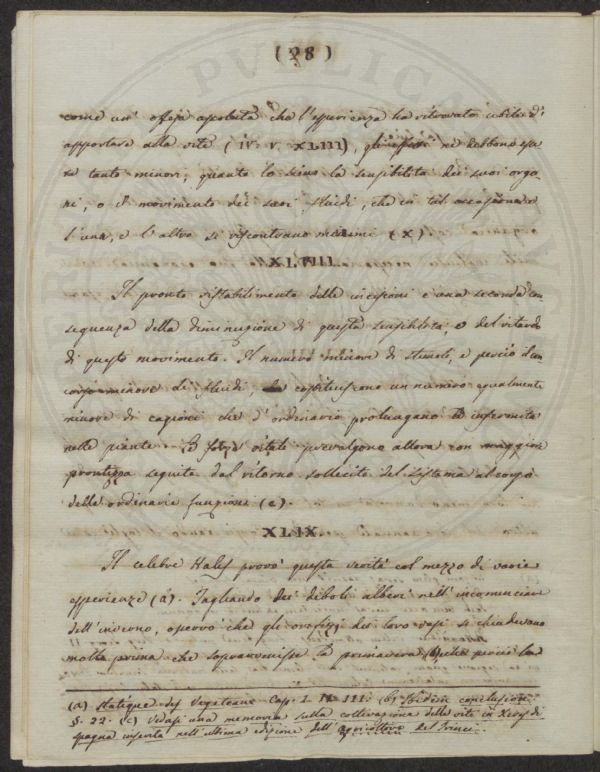 (28)
come un' offesa apportata che l'esperienza ha ritrovato debile d'
apportare alla vite (iv. v. XLIII), gli ne debbono esse
re tanto minori, quanto lo siano la sensibilità dei suoi orga-
ni, o il movimento dei suoi fluidi, che in tal occasione e
l'una, e l'altro si riscontrano minimi (x)
XLVIII.
Il pronto ristabilimento delle incisioni è una seconda con
seguenza della diminuzione di questa sensibilità, e del ritardo
di questo movimento. Il numero minore di stimoli, e perciò d'un
corso minore di fluidi, costituiscono un numero egualmente
minore di cagioni che d'ordinario prolungano le infermità
nelle piante. Le forze vitali prevalgono allora con maggior
prontezza seguita dal ritorno sollecito del sistema al corso
delle ordinarie funzioni (c).
XLIX.
Il celebre Hales provò questa verità col mezzo di varie
esperienze (a). Tagliando dei deboli alberi nell'incominciare
dell'inverno, osservò che gli orifizj dei loro vasi si chiudevano
molto prima che sopravvenisse la primavera (b), che perciò
(a) Statique des Vegeteaux Cap. I. II. III. (b) Ibidem conclusione
§. 22. (c) Vedasi una memoria sulla coltivazione delle viti in Xeres di
Spagna inserita nell'ultima edizione dell'agricoltore del Trinci.